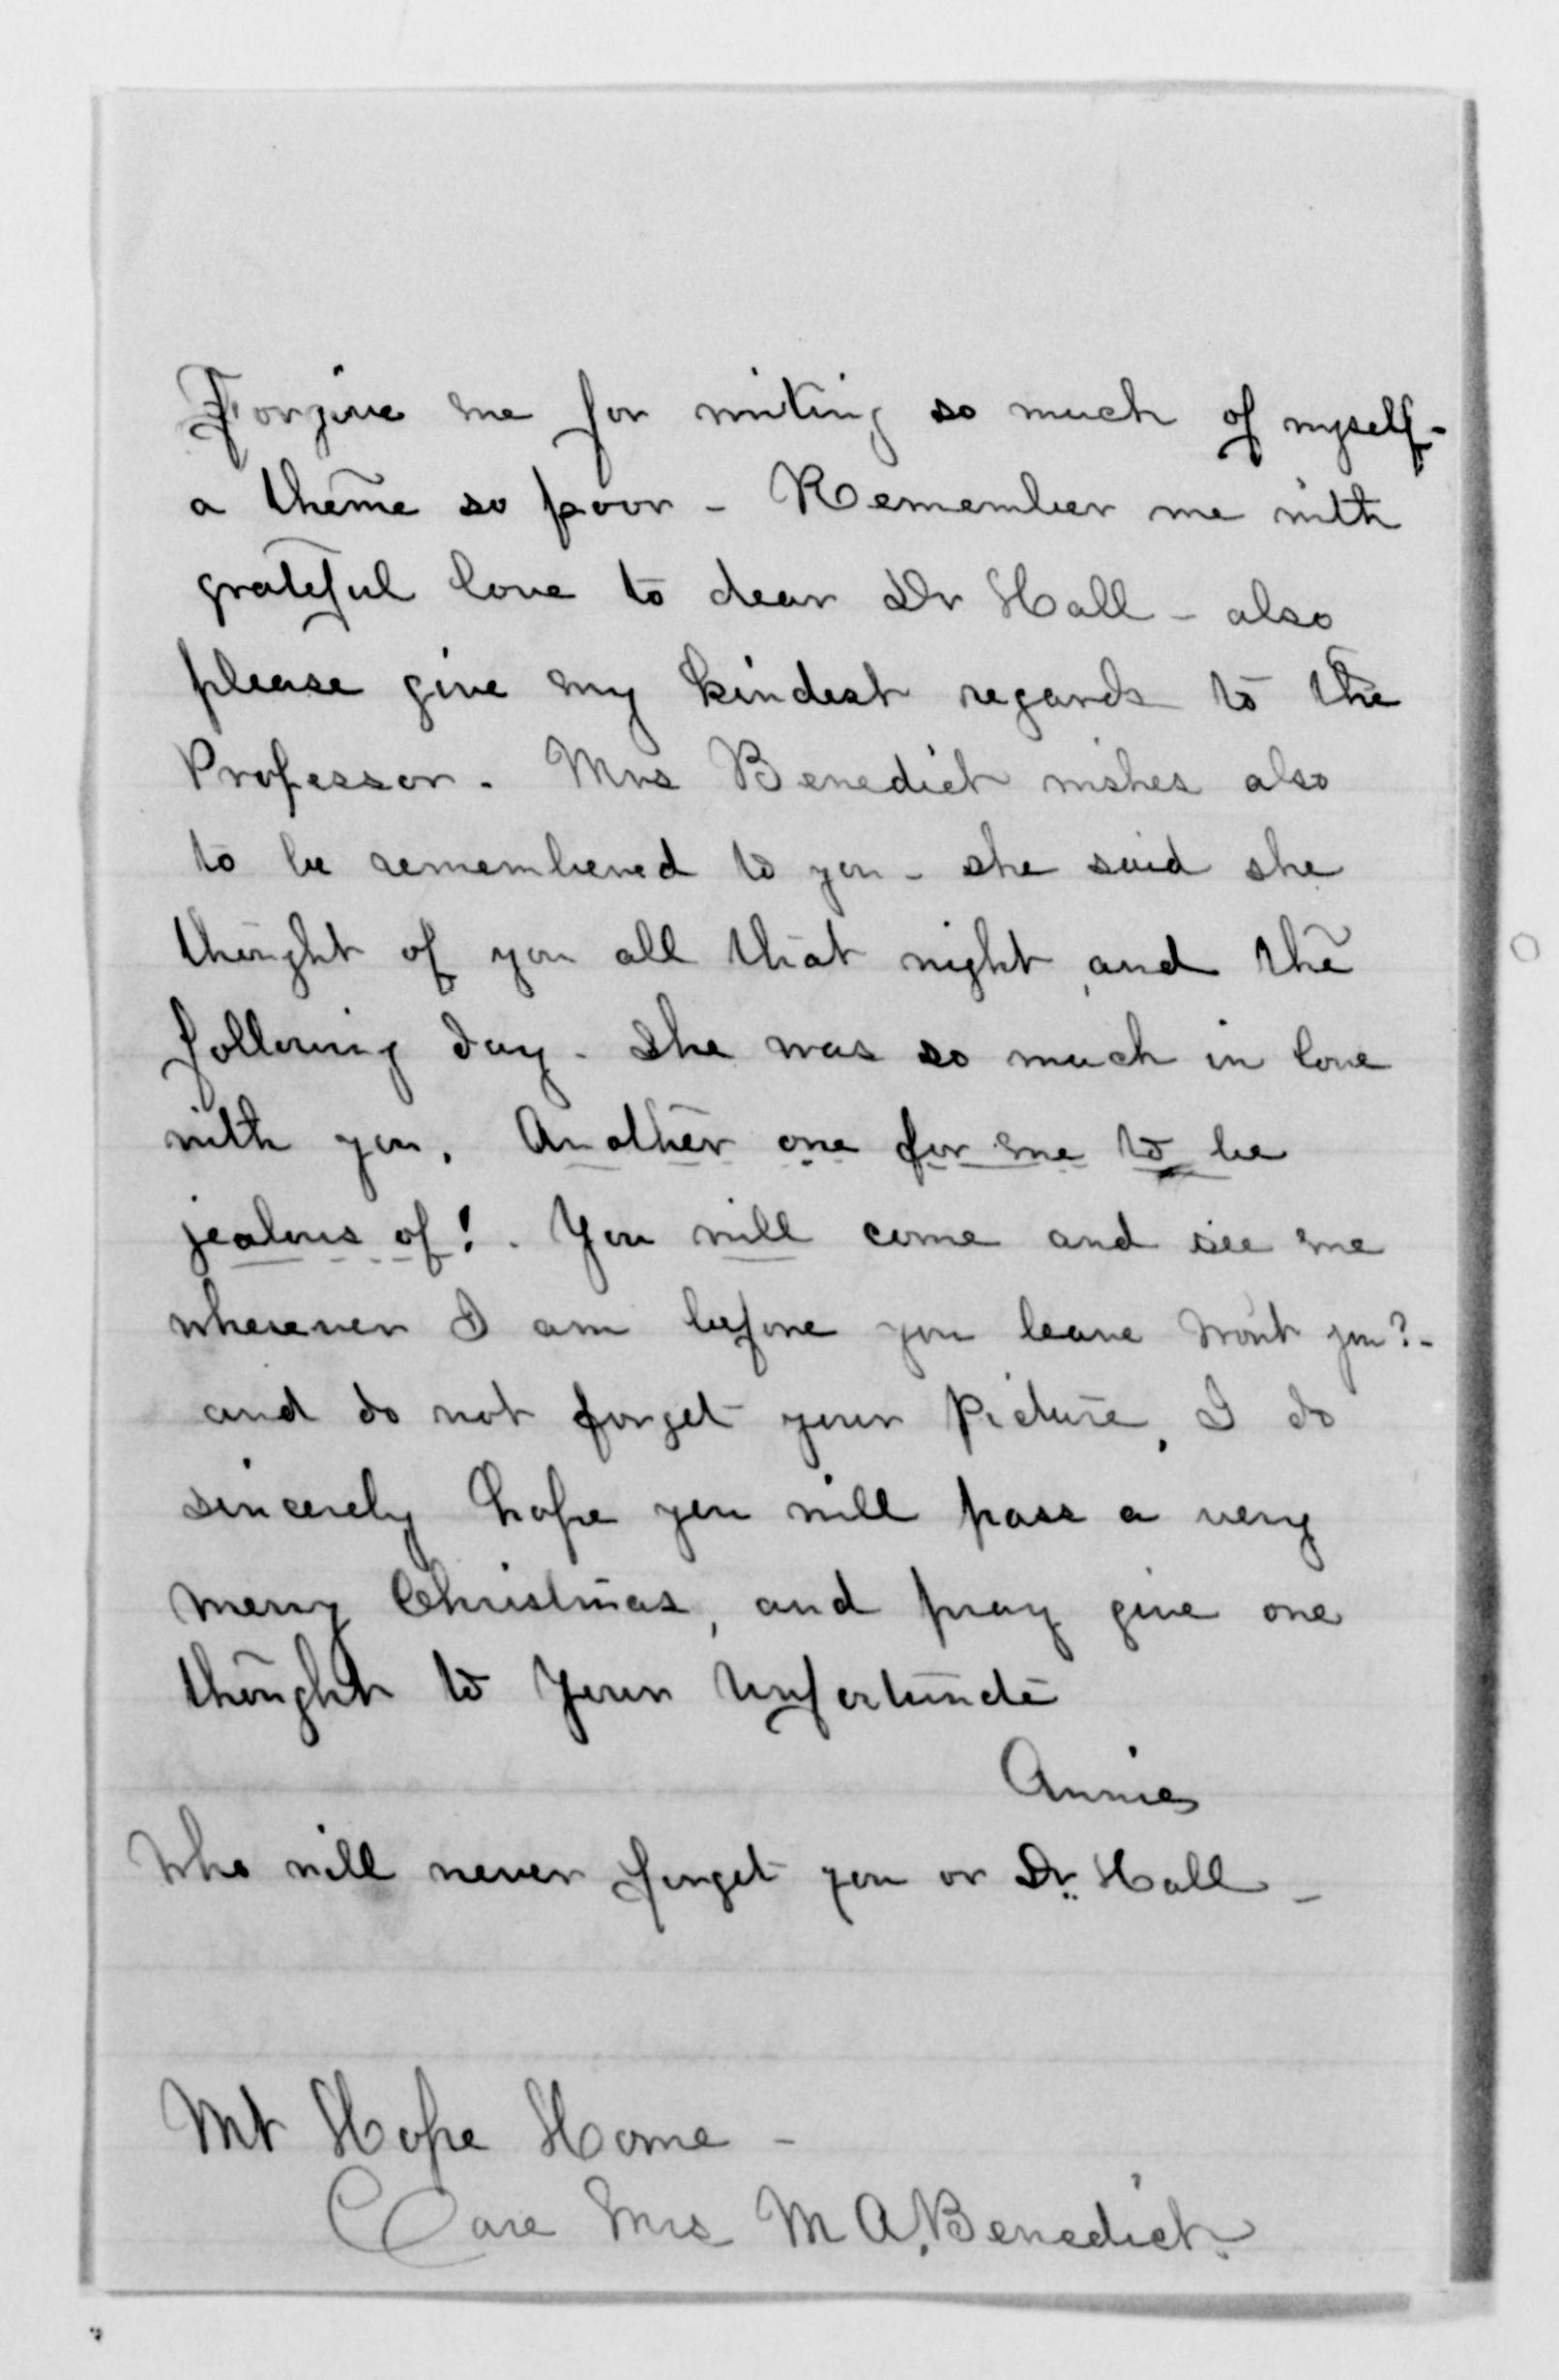 Forgive me for writing so much of myself -
a theme so poor - Remember me with
grateful love to dear Dr Hall - also
please give my kindest regards to the
Professor. Mrs Benedict wishes also
to be remembered to you - she said she
thought of you all that night and the
following day. She was so much in love
with you. Another one for me to be
jealous of! . You will come and see me
wherever I am before you leave Won't you? -
and do not forget your Picture, I do
sincerely hope you will pass a very
merry Christmas, and pray give one
thought to Your Unfortunate
Annie
Who will never forget you or Dr. Hall -
Mt Hope Home -
Care Mrs M A. Benedict.